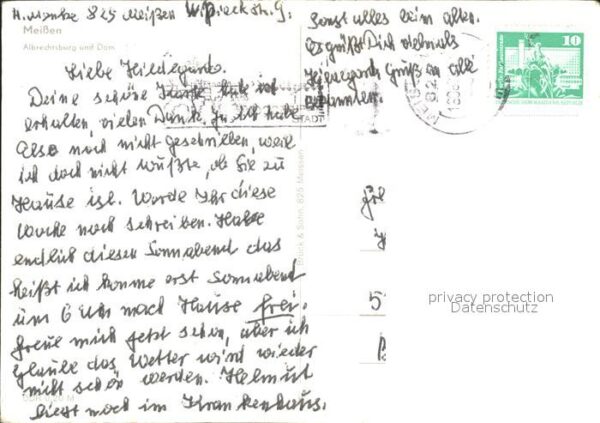 H. Mianke 825 Meißen W. Pieck Str. 9.
Meißen
Albrechtsburg und Dom
Liebe Hildegunt.
Deine schöne Karte habe ist
erhalten, vielen Dank, Ja ich habe
Also noch nicht geschrieben, weil
ich doch nicht wußte, ob Sie zu
Hause ist. Werde Ihr diese
Woche noch schreiben. Habe
endlich diesen Sonnabend das
heißt ich komme erst Sonnabend
um 6 Uhr nach Hause frei.
Freue mich jetzt schon, aber ich
Glaube das Wetter wird wieder
nicht schön werden. Helmut
liegt noch im Krankenhaus.
Sonst alles beim alten.
Es grüßt Dich vielmals
Hildegard, Gruß an alle
Bekannten.
STADT
10
Brück & Sohn, 825 Meissen
5
privacy protection
Datenschutz